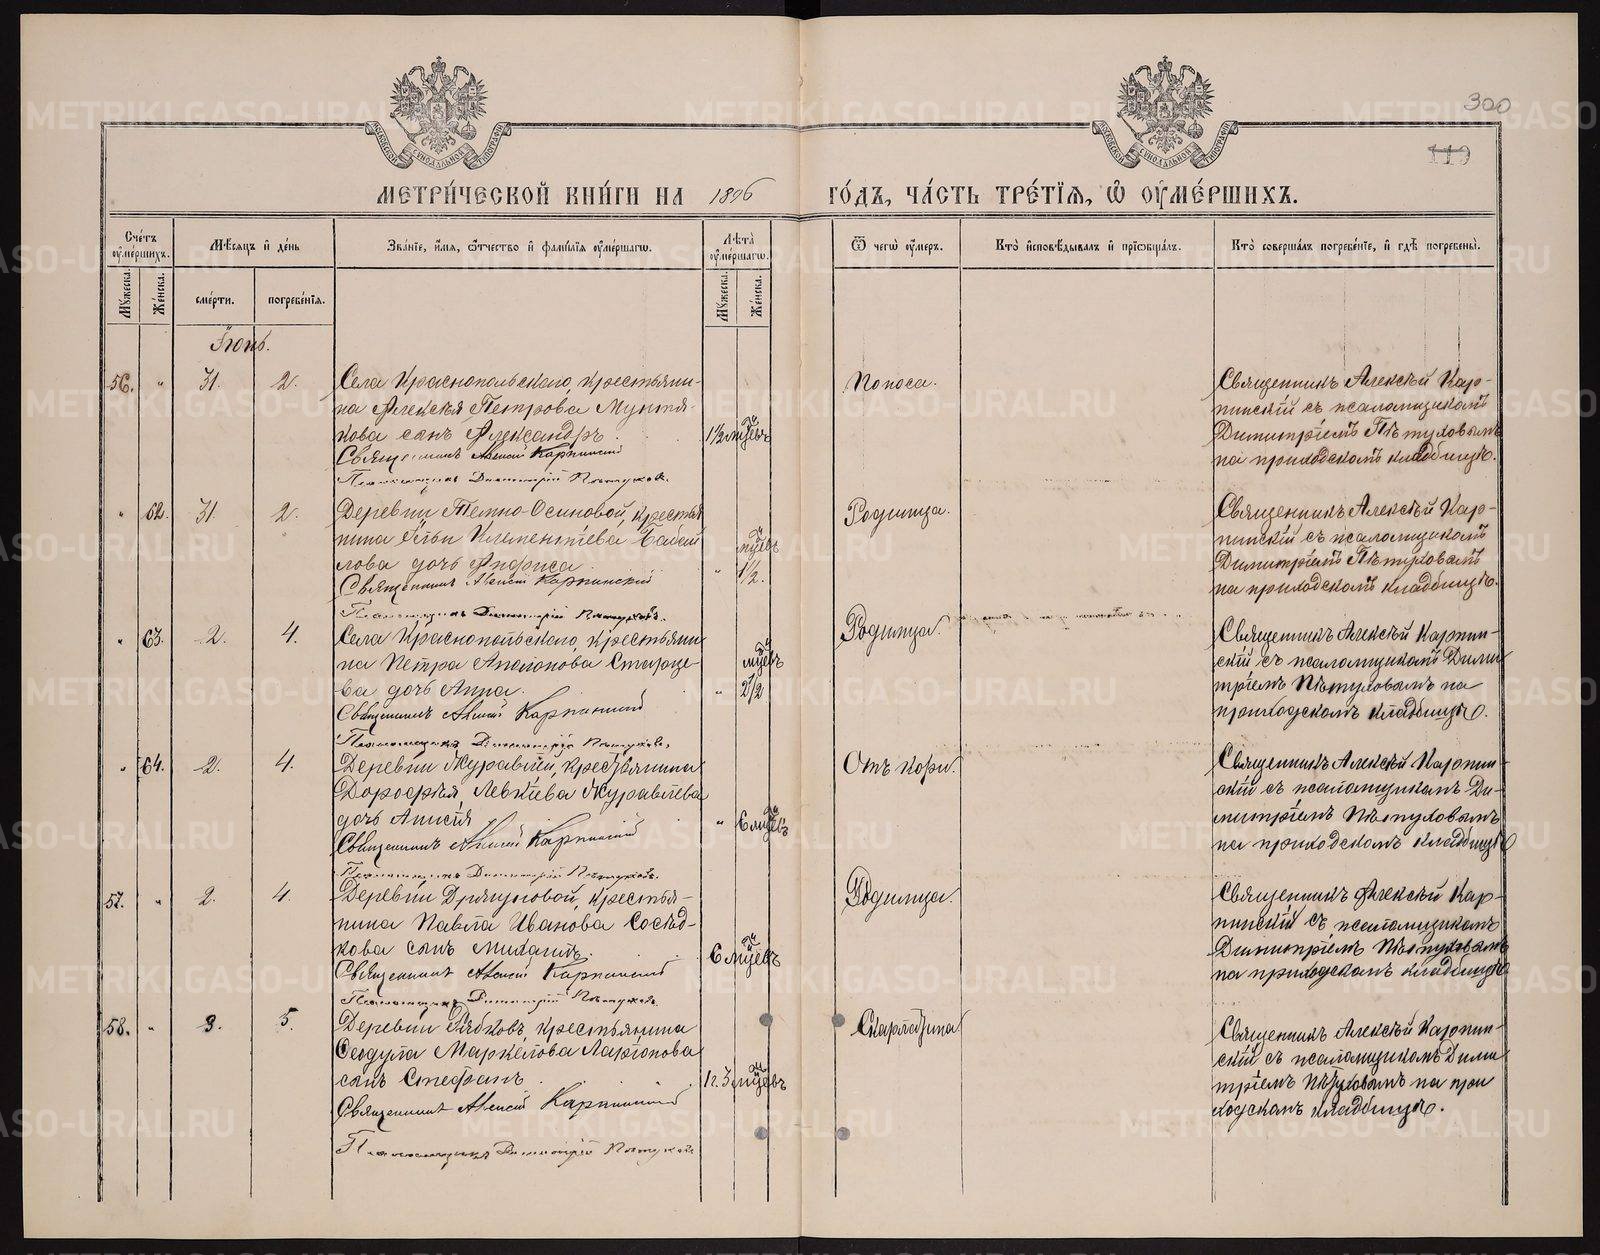 300
119
МОСКОВСКОЙ СѴНОДАЛЬНОЙ ТИПОГРАФІИ
МОСКОВСКОЙ СѴНОДАЛЬНОЙ ТИПОГРАФІИ
МЕТРИ́ЧЕСКОЙ КНИ́ГИ НА 1896 ГО́ДЪ, ЧА́СТЬ ТРЕ́ТІѦ, Ѡ҆ ОУ҆МЕ́РШИХЪ.
Сче́тъ оу҆ме́ршихъ.
Мꙋ́жеска.
Же́нска.
Мѣ́сяцъ и҆ де́нь
сме́рти.
погребе́нїѧ.
Зва́нїе, и҆́мѧ, ѻ҆́тчество и҆ фами́лїѧ оу҆ме́ршагѡ.
Лѣта̀ оу҆ме́ршагѡ.
Мꙋ́жеска.
Же́нска.
Ѿ чегѡ̀ оу҆́меръ.
Кто̀ и҆сповѣ́дывалъ и҆ прїѡбща́лъ.
Кто̀ соверша́лъ погребе́нїе, и҆ гдѣ̀ погребены̀.
Іюнь.
56. " 31. 2.
Села Краснопольскаго, крестьяни-
на Алексѣя Петрова
кова сынъ Александръ.
Священникъ Алексій Карпинскій
Псаломщикъ Димитрій Пѣтуховъ.
1½ мцевъ
Поноса.
Священникъ Алексѣй Кар-
пинскій съ псаломщикомъ
Димитріемъ Пѣтуховымъ
на приходскомъ кладбищѣ.
" 62. 31. 2.
Деревни Темно-Осиновой, крестья
нина Ильи Климентіева
лова дочь Анфиса.
Священникъ Алексій Карпинскій
Псаломщикъ Димитрій Пѣтуховъ.
" мцев 1½.
Родимца.
Священникъ Алексѣй Кар-
пинскій съ псаломщикомъ
Димитріемъ Пѣтуховымъ
на приходскомъ кладбищѣ.
" 63. 2. 4.
Села Краснопольскаго, крестьяни
на Петра Старце-
ва дочь Анна.
Священникъ Алексій Карпинскій
Псаломщикъ Димитрій Пѣтуховъ.
" мцевъ 2½
Родимца.
Священникъ Алексѣй Карпин-
скій съ псаломщикомъ Дими
тріемъ Пѣтуховымъ на
приходскомъ кладбищѣ.
" 64. 2. 4.
Деревни Журавлей, крестьянина
Дорофѣя Левкіева Журавлева
дочь Анисія
Священникъ Алексій Карпинскій
Псаломщикъ Димитрій Пѣтуховъ.
" 6 мцевъ
Отъ кори.
Священникъ Алексѣй Карпин-
скій съ псаломщикомъ Ди-
митріемъ Пѣтуховымъ
на приходскомъ кладбищѣ
57. " 2. 4.
Деревни Дрягуновой, крестья-
нина Павла Иванова Сосѣд-
кова сынъ Михаилъ.
Священникъ Алексій Карпинскій
Псаломщикъ Димитрій Пѣтуховъ.
6 мцевъ
Родимца.
Священникъ Алексѣй Кар-
пинскій съ псаломщикомъ
Димитріемъ Пѣтуховымъ
на приходскомъ кладбищѣ
58. " 3. 5.
Деревни Рябковъ, крестьянина
Ѳеодула Маркелова Ларіонова
сынъ Стефанъ.
Священникъ Алексій Карпинскій
Псаломщикъ Димитрій Пѣтуховъ
1г. 3 мцевъ
Скарлатина
Священникъ Алексѣй Карпин-
скій съ псаломщикомъ Дими
тріемъ Пѣтуховымъ на при
ходскомъ кладбищѣ.
METRIKI.GASO-URAL.RU